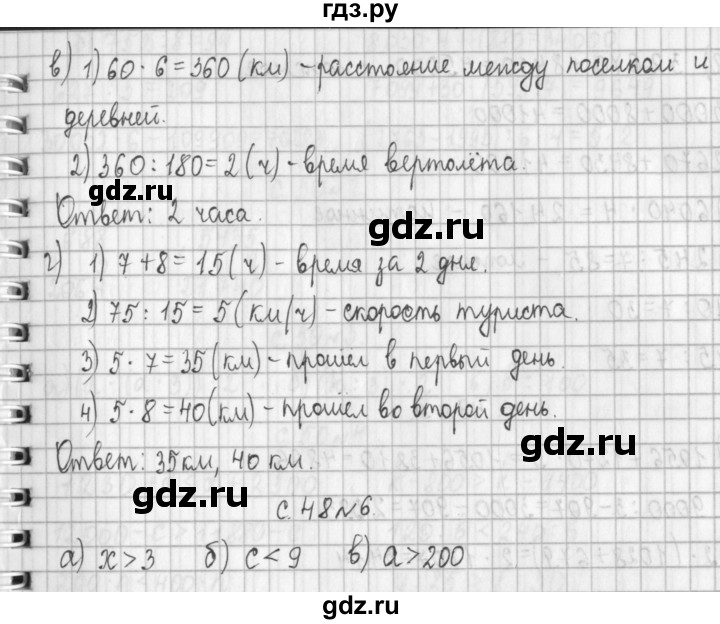 гдз.ру
в) 1) 60 · 6 = 360 (км) - расстояние между поселком и
деревней.
2) 360 : 180 = 2 (ч) - время вертолёта.
gdz.ru
Ответ: 2 часа.
gdz.ru
г) 1) 7 + 8 = 15 (ч) - время за 2 дня.
2) 75 : 15 = 5 (км/ч) - скорость туриста.
3) 5 · 7 = 35 (км) - прошёл в первый день.
4) 5 · 8 = 40 (км) - прошёл во второй день.
gdz.ru
Ответ: 35 км, 40 км.
gdz.ru
с. 48 № 6.
а) x > 3 б) c < 9 в) a > 200
gdz.ru